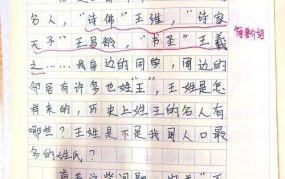 名人，“诗佛”王维，“诗家
天子”王昌龄，“书圣”王羲
之……我身边的同学，周边的
邻居有许多也姓“王”，王姓是怎
样来的，历史上姓王的名人有
哪些？王姓是不是我国人口最
多的姓氏？